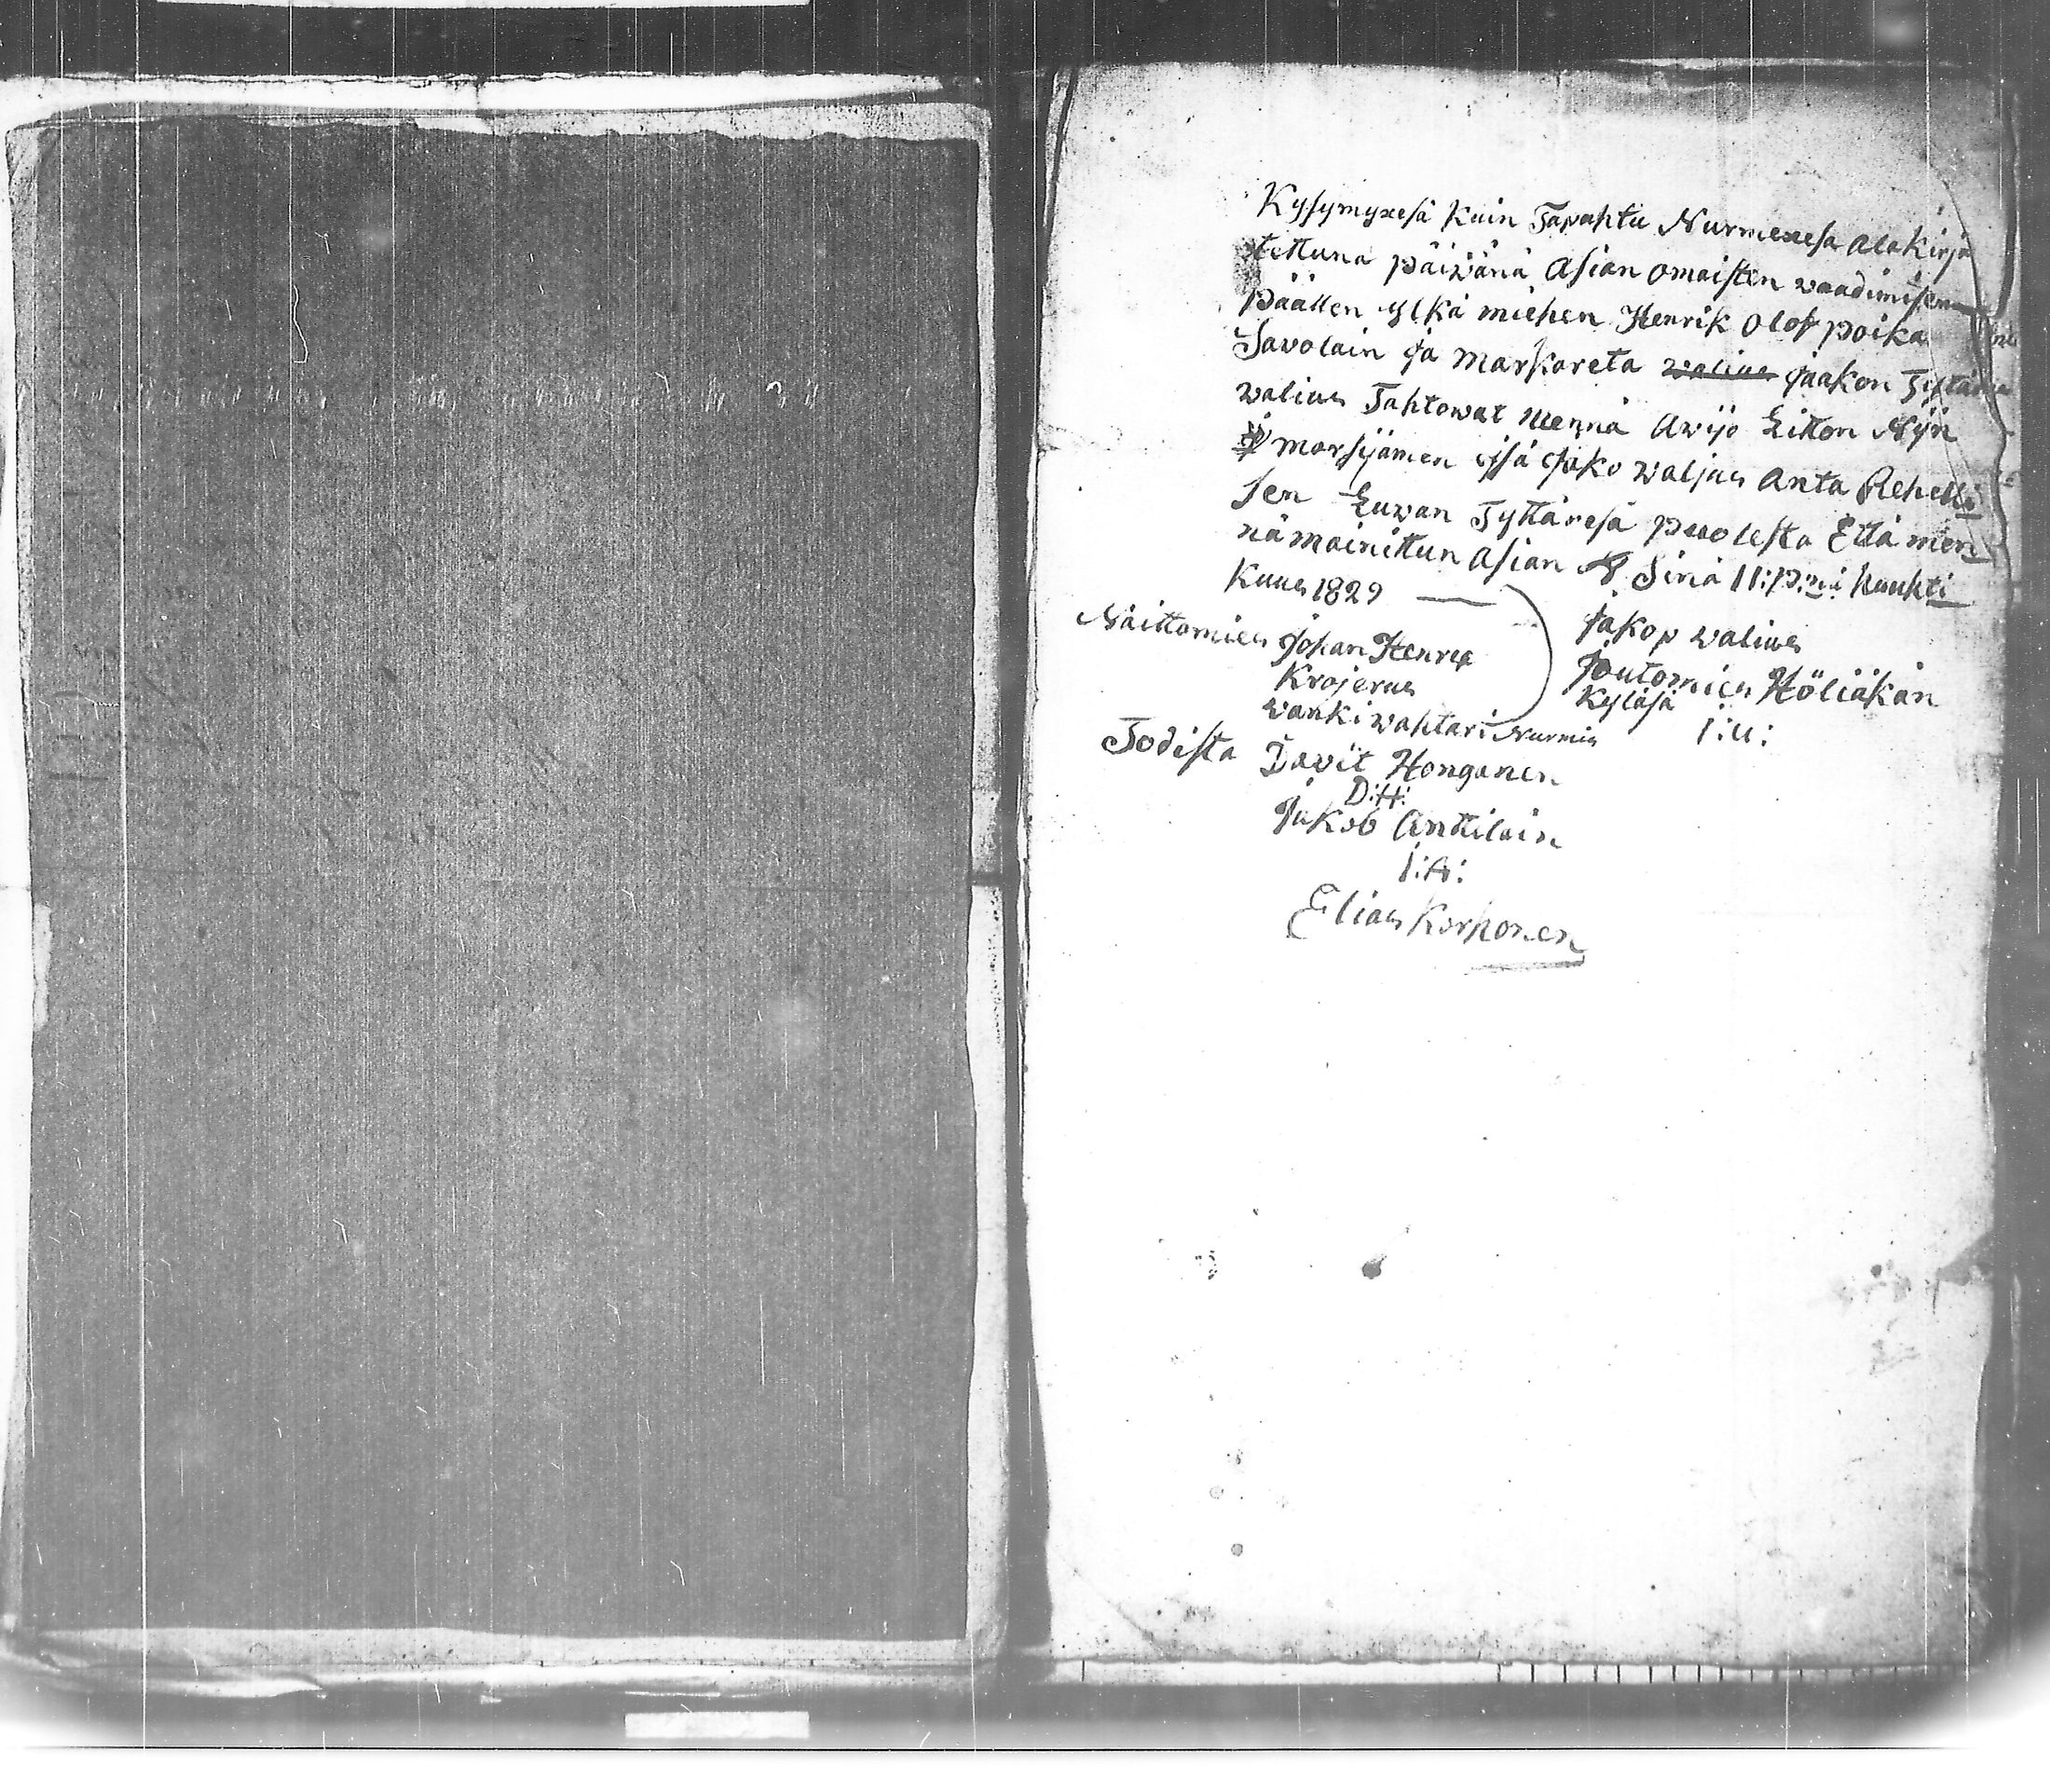 Kysymyxesä kuin Tapahtu Nurmexesa alakirja
tettuna päiwänä asian omaisten waadimisen
päällen ylkä miehen Henrik Olof poika
Savolain ja Markareta walius Jaakon Tyttären
walius Tahtowat Mennä Awijo Liiton Nijn
morsijämen isä Jako waljus anta Rehelli
sen Luwan Tyttäresä puolesta Että men
nä mainittun asian Sinä 11:P:nä huuhti
Kuus 1829
Naittomies Johan Henrik
Krojerus
wankiwahtari Nurmis
Jakop walius
Joutomies Höliäkän
Kyläsä
I:U:
Todista Davit Honganen
D:H:
Jakob Antilain
I:A:
Elias Korhonen